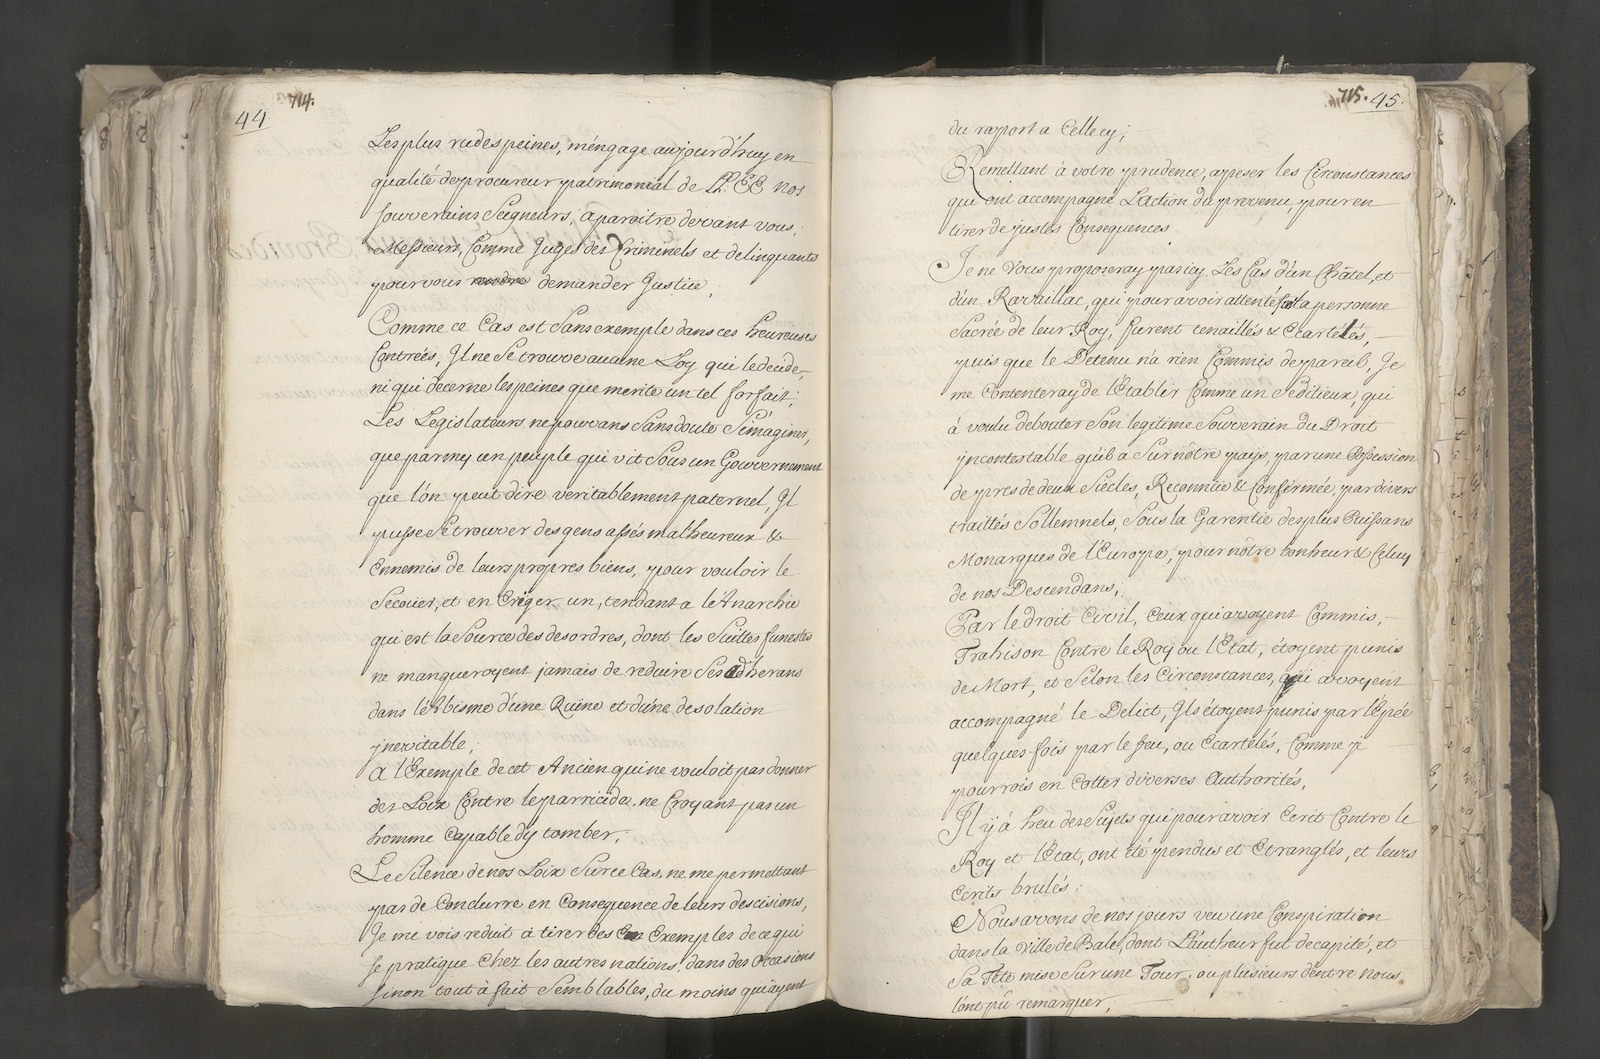 44 714.
Les plus rudes peines, m'engage aujourd'huy en
qualité de procureur patrimonial de LL. EE. nos
souverains Seigneurs, a paroitre devant vous,
Messieurs, Comme Juges des Criminels et delinquants
pour vous demander Justice,
Comme ce Cas est Sans exemple dans ces heureuses
Contrées, Il ne Se trouve aucune Loy qui le decide,
ni qui decerne les peines que merite un tel forfait;
Les Legislateurs ne pouvans Sans doute S'imaginer,
que parmy un peuple qui vit Sous un Gouvernement
que l'on peut dire veritablement paternel, Il
pusse Se trouver des gens assés malheureux &
Ennemis de leurs propres biens, pour vouloir le
Secouer, et en Eriger un, tendant a l'Anarchie
qui est la Source des desordres, dont les Suittes funestes
ne manqueroyent jamais de reduire Ses adherans
dans l'Abisme d'une Ruine et d'une desolation
inevitable;
A l'Exemple de cet Ancien qui ne vouloit pas donner
des Loix Contre le parricide, ne Croyant pas un
homme Capable d'y tomber;
Le Silence de nos Loix Sur ce Cas, ne me permettant
pas de Conclurre en Consequence de leurs descisions,
Je me vois reduit à tirer des Exemples de ce qui
se pratique Chez les autres nations, dans des occasions
sinon tout à fait Semblables, du moins qui ayent
715. 45.
du raport a Celle cy;
Remettant à votre prudence, a peser les Circonstances
qui ont accompagné L'action du prevenu, pour en
tirer de justes Consequences
Je ne Vous proposeray pas icy, Les Cas d'un Châtel, et
d'un Ravaillac, qui pour avoir attenté sur la personne
Sacrée de leur Roy, furent tenaillés & Ecartelés,
puis que le Detenu n'a rien Commis de pareil, Je
me Contenteray de l'Etablir Comme un Seditieux, qui
à voulu debouter Son legitime Souverain du Droit
incontestable qu'il a Sur nôtre pays, par une Possession
de pres de deux Siècles, Reconnüe & Confirmée, par divers
traittés Sollemnels, Sous la Garentie des plus Puissans
Monarques de l'Europe, pour nôtre bonheur & Celuy
de nos Descendans,
Par le droit Civil, Ceux qui avoyent Commis,
Trahison Contre le Roy ou l'Etat, étoyent punis
de Mort, et Selon les Circonstances, qui avoyent
accompagné le Delict, Ils étoyent punis par l'Epée
quelques fois par le feu, ou Ecartelés, Comme je
pourrois en Cotter diverses Authorités,
Il y à heu des Sujets qui pour avoir Ecrit Contre le
Roy et l'Etat, ont été pendus et Etranglés, et leurs
Ecrits brulés;
Nous avons de nos jours veu une Conspiration
dans la Ville de Bale, dont L'autheur fut decapité, et
Sa Tête mise Sur une Tour, ou plusieurs d'entre nous
l'ont pû remarquer,